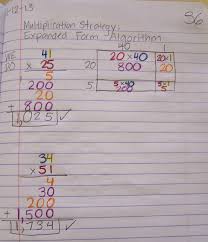 -12-13
36
Multiplication Strategy:
Expanded Form Algorithm
41
× 25
5
200
20
+ 800
1,025 ✓
40 1
20 20×40 20×1
800 20
5 5×40 5×1
200 5
34
× 51
4
30
200
+ 1,500
1,734 ✓